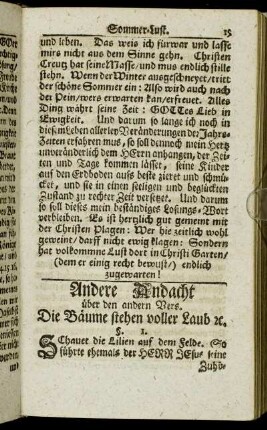 Sommer-Lust. 15
und leben. Das weis ich fürwar und lasse
mirs nicht aus dem Sinne gehn. Christen
Creutz hat seine Masse/und mus endlich stille
stehn. Wenn der Winter ausgeschneyet/tritt
der schöne Sommer ein: Also wird auch nach
der Pein/wers erwarten kan/erfreuet. Alles
Ding währt seine Zeit: GOTTes Lieb in
Ewigkeit. Und darum so lange ich noch in
diesem Leben allerley Veränderungen der Jahrs-
Zeiten erfahren mus, so soll dennoch mein Hertz
unveränderlich dem HErrn anhangen, der Zei-
ten und Tage kommen lässet, seine Kinder
auf den Erdboden aufs beste zieret und schmü-
cket, und sie in einen seeligen und beglückten
Zustand zu rechter Zeit versetzet. Und darum
so soll dieses mein beständiges Losungs-Wort
verbleiben. Es ist hertzlich gut gemeint mit
der Christen Plagen: Wer hie zeitlich wohl
geweinet/darff nicht ewig klagen: Sondern
hat vollkommne Lust dort in Christi Garten/
(dem er einig recht bewust/) endlich
zugewarten!
Andere Andacht
über den andern Vers.
Die Bäume stehen voller Laub ꝛc.
§. 1.
Schauet die Lilien auf dem Felde. (So
führte ehemals der HERR JEsus seine
Zuhö-